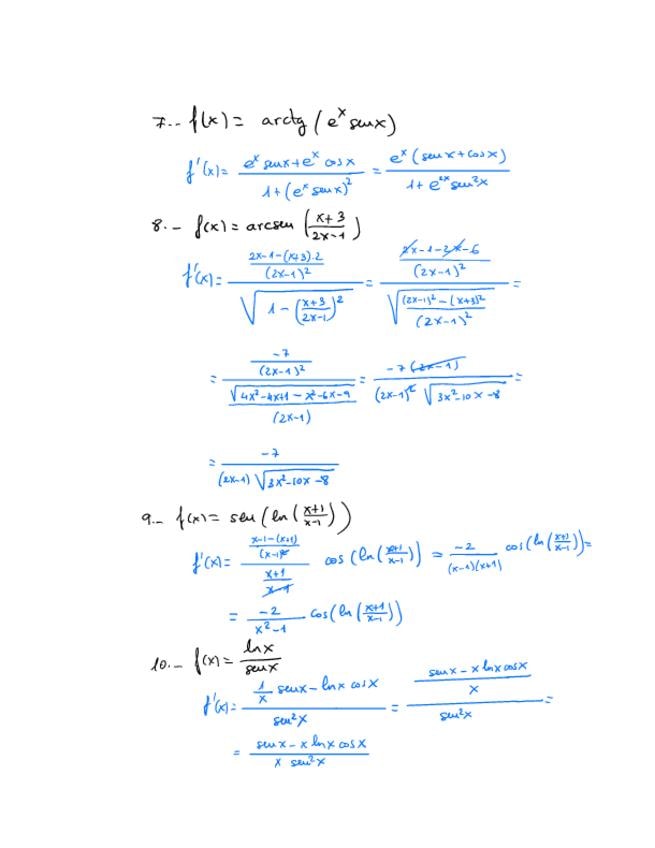 7.- f(x) = arctg (e^x senx)
f'(x) = (e^x senx + e^x cosx)/(1+(e^x senx)^2) = (e^x (senx + cosx))/(1+ e^{2x} sen^2x)
8.- f(x) = arcsen ((x+3)/(2x-1))
f'(x) = ((2x-1-(x+3)·2)/(2x-1)^2)/√(1-((x+3)/(2x-1))^2) = ((2x-1-2x-6)/(2x-1)^2)/√(((2x-1)^2-(x+3)^2)/(2x-1)^2) =
= (-7/(2x-1)^2)/(√(4x^2-4x+1-x^2-6x-9)/(2x-1)) = (-7(2x-1))/((2x-1)^2 √(3x^2-10x-8)) =
= -7/((2x-1)√(3x^2-10x-8))
9.- f(x) = sen (ln ((x+1)/(x-1)))
f'(x) = ((x-1-(x+1))/(x-1)^2)/((x+1)/(x-1)) cos (ln ((x+1)/(x-1))) = -2/((x-1)(x+1)) cos (ln ((x+1)/(x-1))) =
= -2/(x^2-1) cos (ln ((x+1)/(x-1)))
10.- f(x) = lnx/senx
f'(x) = (1/x senx - lnx cosx)/sen^2x = ((senx - x lnx cosx)/x)/sen^2x =
= (senx - x lnx cosx)/(x sen^2x)